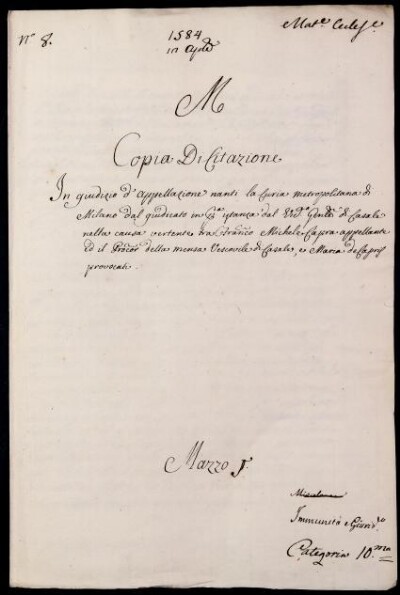 N° 8.
1584
in Aple
Mate Eccles.e
M
Copia Di Citazione
In giudizio d'appellazione nanti la Curia metropolitana di
Milano dal giudicato in pma ystanza dal Vico Genle di Casale
nella causa vertente tra Franco Michele Capra appellante
ed il Procre della mensa Vescovile di Casale, e Maria de Capris
provocati.
Mazzo 1°.
Miscelanea
Immunità e Giuris
Categoria 10.ma